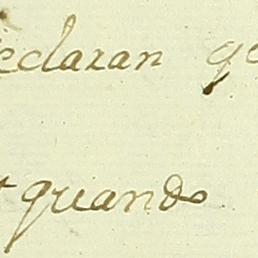 eclaran qe
quando